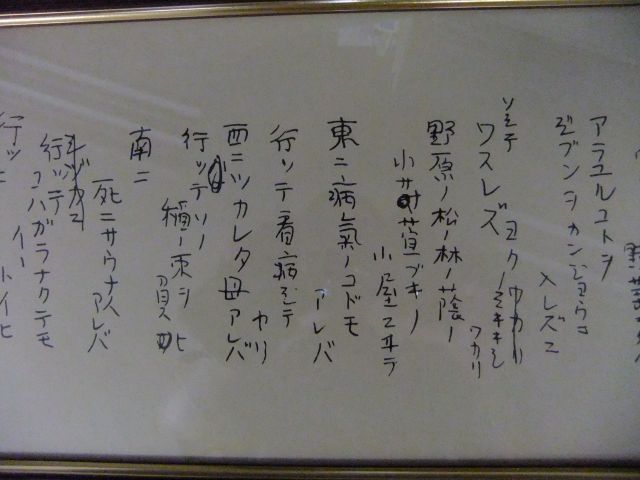 アラユルコトヲ
ジブンヲカンジョウニ
入レズニ
ヨクミキキシ
ワカリ
ソシテ
ワスレズ
野原ノ松ノ林ノ蔭ノ
小サナ萓ブキノ
小屋ニヰテ
東ニ病氣ノコドモ
アレバ
行ッテ看病シテ
ヤリ
西ニツカレタ母アレバ
行ッテソノ
稲ノ束ヲ
負ヒ
南ニ
死ニサウナ人
アレバ
行ッテ
コハガラナクテモ
イヽ
トイヒ